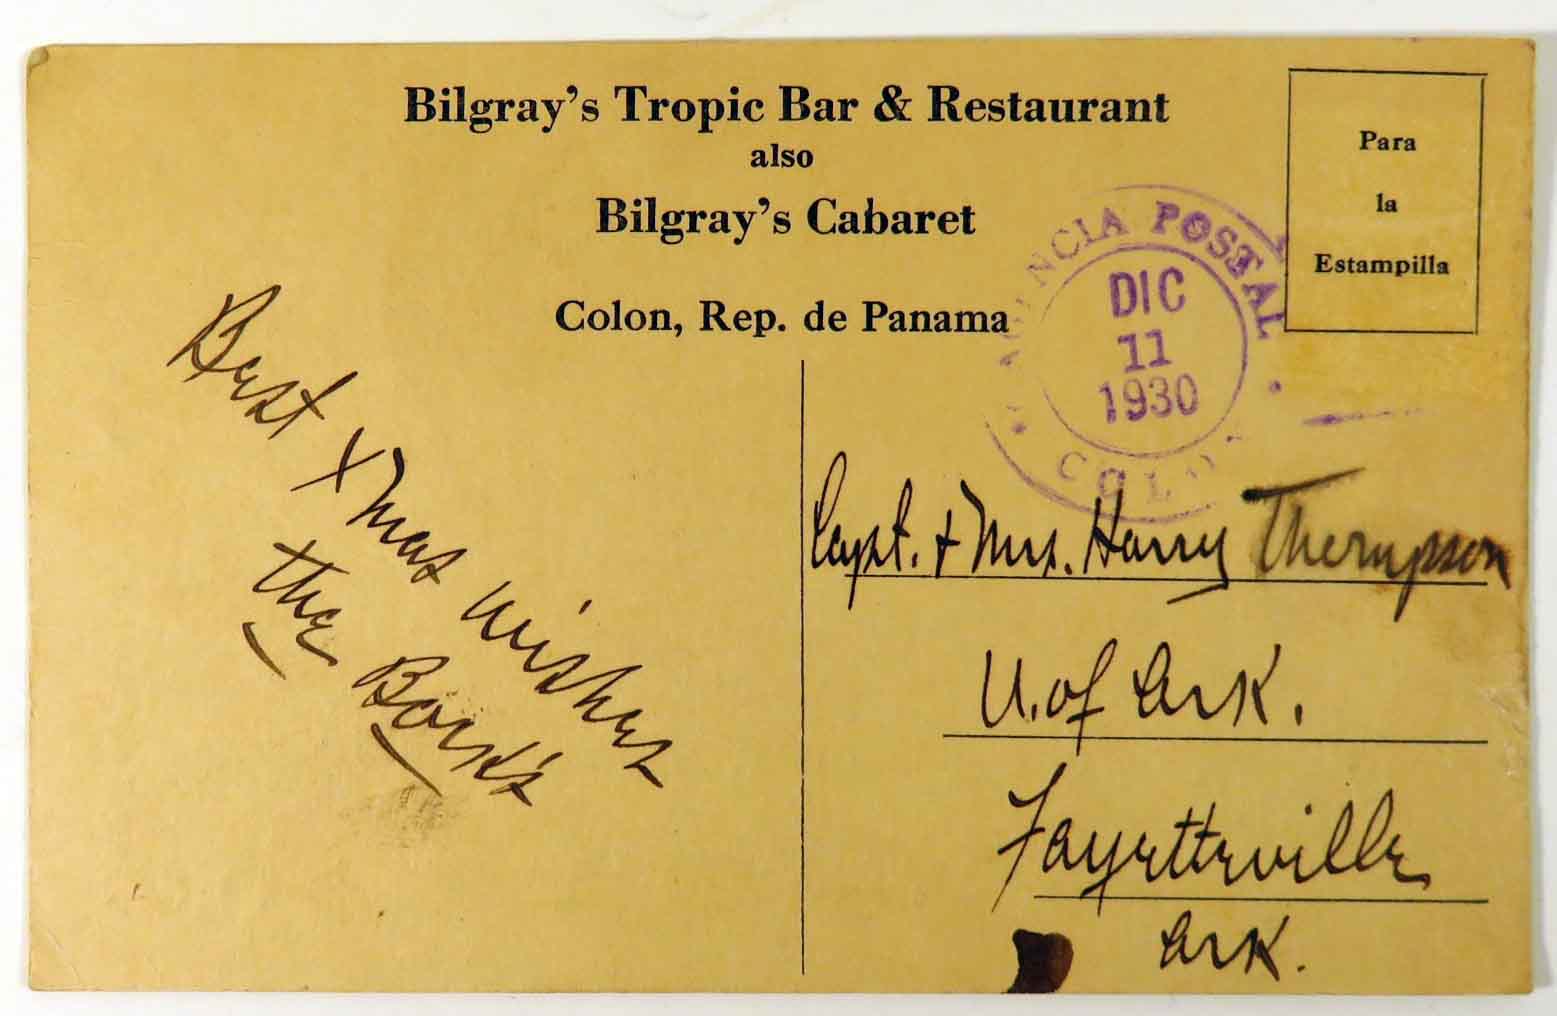 Bilgray's Tropic Bar & Restaurant
also
Bilgray's Cabaret
Colon, Rep. de Panama
Para
la
Estampilla
AGENCIA POSTAL
DIC
11
1930
COLON
Best Xmas wishes
the
Capt. + Mrs. Harry Thompson
U. of Ark.
Fayetteville
Ark.